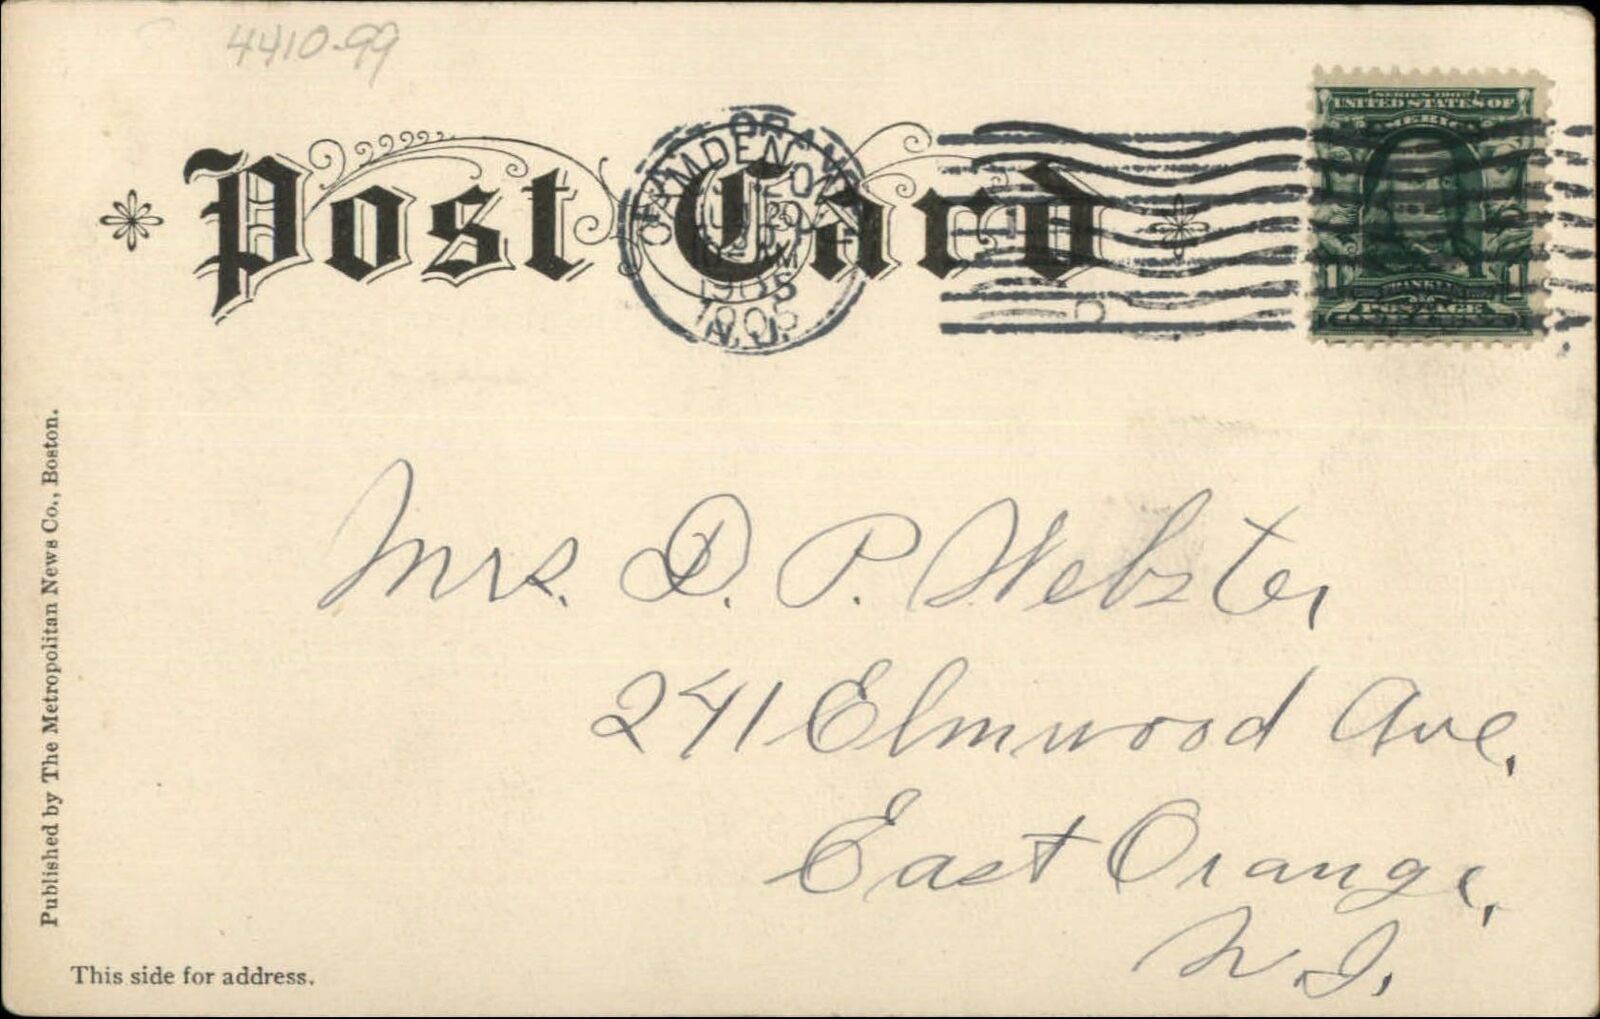 4410-99
Post Card
CAMDEN
ORANGE
AM
1905
N.J.
SERIES 1902
UNITED STATES OF
AMERICA
1 FRANKLIN 1
POSTAGE
Mrs. D. P. Webster
241 Elmwood Ave.
East Orange,
N.J.
Published by The Metropolitan News Co., Boston.
This side for address.